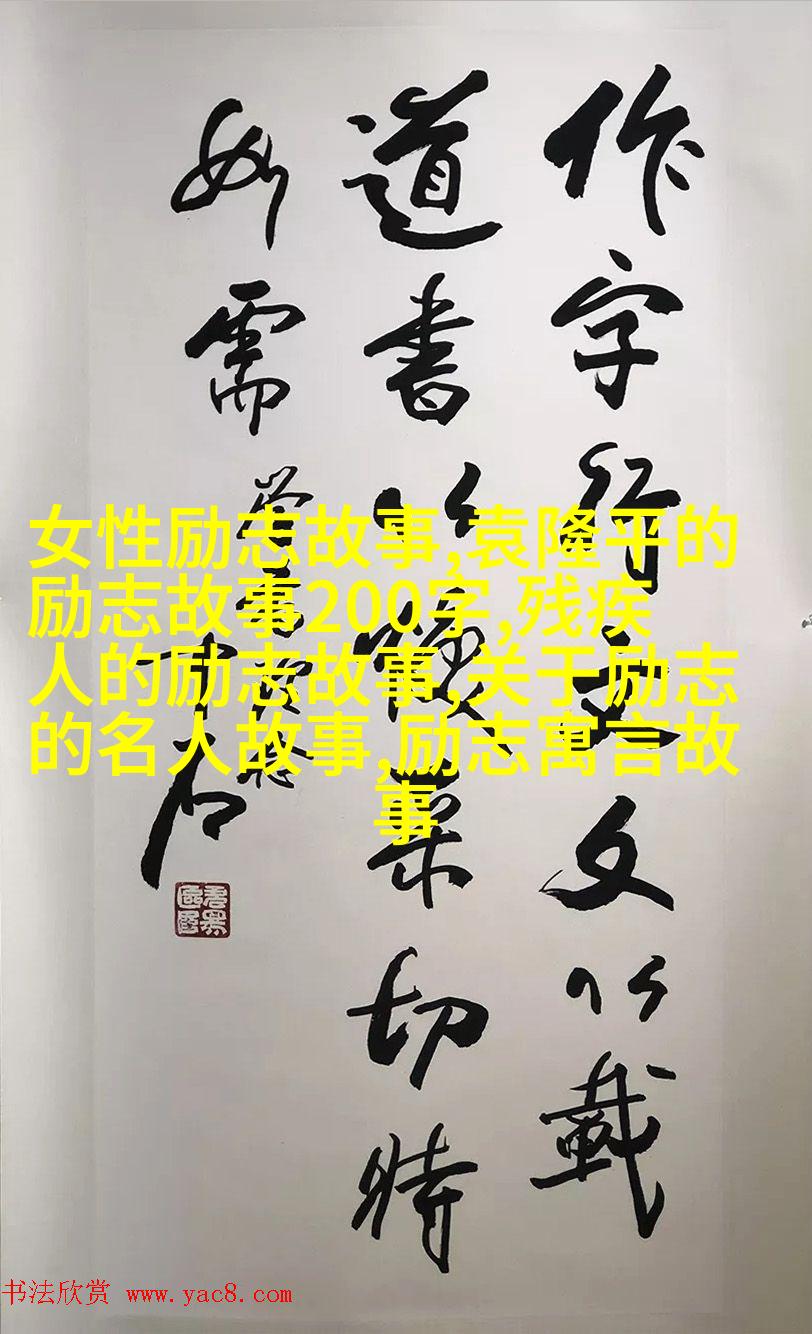 作字行文文以载
道书以焕采切时
如需
学书语
千石
女性励志故事,袁隆平的
励志故事200字,残疾
人的励志故事,关于励志
的名人故事,励志寓言故
事
书法欣赏 www.yac8.com